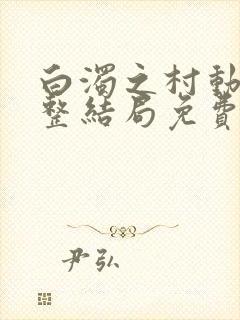 白濁之村動
整結局免費
尹弘